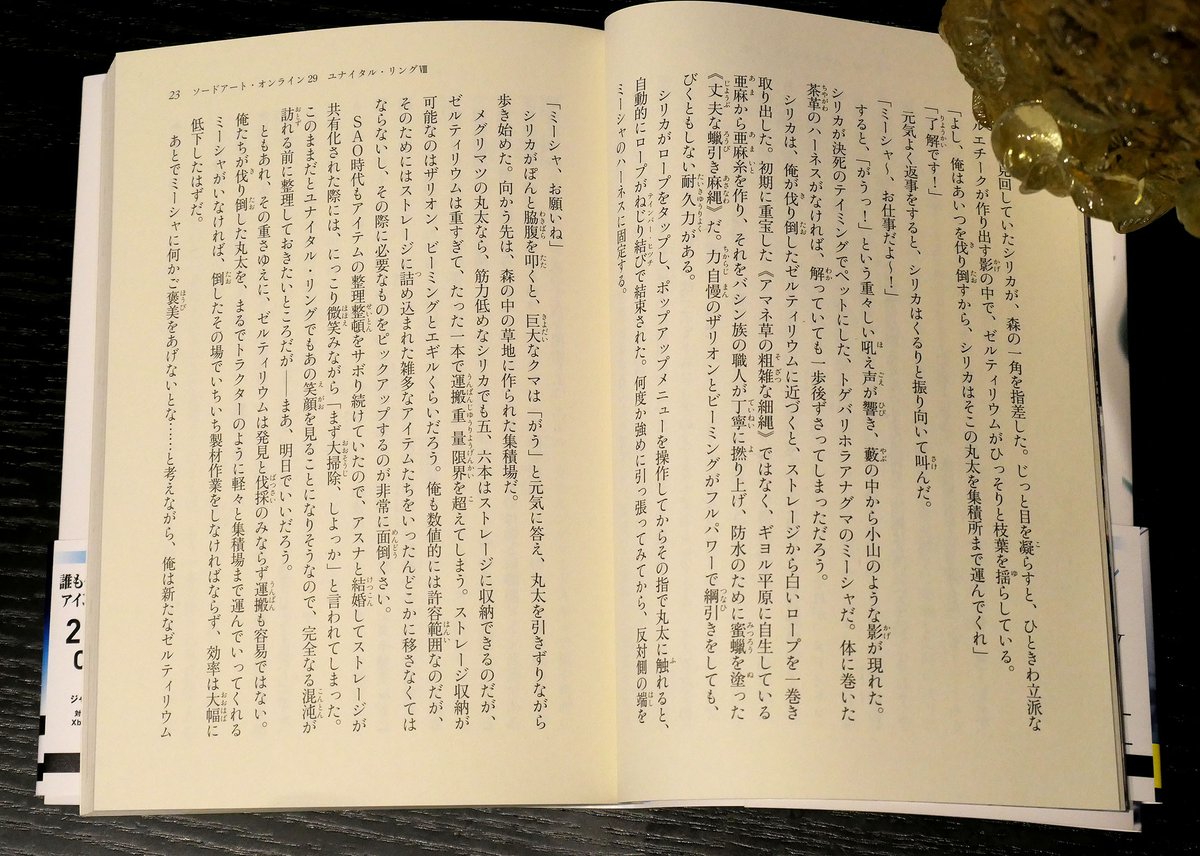 見回していたシリカが、森の一角を指差した。じっと目を凝らすと、ひときわ立派な
ルエチークが作り出す影の中で、ゼルティリウムがひっそりと枝葉を揺らしている。
「よし、俺はあいつを伐り倒すから、シリカはそこの丸太を集積所まで運んでくれ」
「了解です！」
元気よく返事をすると、シリカはくるりと振り向いて叫んだ。
「ミーシャ～、お仕事だよ～！」
すると、「がうっ！」という重々しい吼え声が響き、藪の中から小山のような影が現れた。
シリカが決死のテイミングでペットにした、トゲバリホラアナグマのミーシャだ。体に巻いた
茶革のハーネスがなければ、解っていても一歩後ずさってしまっただろう。
シリカは、俺が伐り倒したゼルティリウムに近づくと、ストレージから白いロープを一巻き
取り出した。初期に重宝した《アマネ草の粗雑な細縄》ではなく、ギヨル平原に自生している
亜麻から亜麻糸を作り、それをバシン族の職人が丁寧に撚り上げ、防水のために蜜蠟を塗った
《丈夫な蠟引き麻縄》だ。力自慢のザリオンとビーミングがフルパワーで綱引きをしても、
びくともしない耐久力がある。
シリカがロープをタップし、ポップアップメニューを操作してからその指で丸太に触れると、
自動的にロープがねじり結びで結束された。何度か強めに引っ張ってみてから、反対側の端を
ミーシャのハーネスに固定する。
「ミーシャ、お願いね」
シリカがぽんと脇腹を叩くと、巨大なクマは「がう」と元気に答え、丸太を引きずりながら
歩き始めた。向かう先は、森の中の草地に作られた集積場だ。
メグリマツの丸太なら、筋力低めなシリカでも五、六本はストレージに収納できるのだが、
ゼルティリウムは重すぎて、たった一本で運搬重量限界を超えてしまう。ストレージ収納が
可能なのはザリオン、ビーミングとエギルくらいだろう。俺も数値的には許容範囲なのだが、
そのためにはストレージに詰め込まれた雑多なアイテムたちをいったんどこかに移さなくては
ならないし、その際に必要なものをピックアップするのが非常に面倒くさい。
ＳＡＯ時代もアイテムの整理整頓をサボり続けていたので、アスナと結婚してストレージが
共有化された際には、にっこり微笑みながら「まず大掃除、しよっか」と言われてしまった。
このままだとユナイタル・リングでもあの笑顔を見ることになりそうなので、完全なる混沌が
訪れる前に整理しておきたいところだが――まあ、明日でいいだろう。
ともあれ、その重さゆえに、ゼルティリウムは発見と伐採のみならず運搬も容易ではない。
俺たちが伐り倒した丸太を、まるでトラクターのように軽々と集積場まで運んでいってくれる
ミーシャがいなければ、倒したその場でいちいち製材作業をしなければならず、効率は大幅に
低下したはずだ。
あとでミーシャに何かご褒美をあげないとな……と考えながら、俺は新たなゼルティリウム
23 ソードアート・オンライン29 ユナイタル・リングⅧ
誰も
アイン